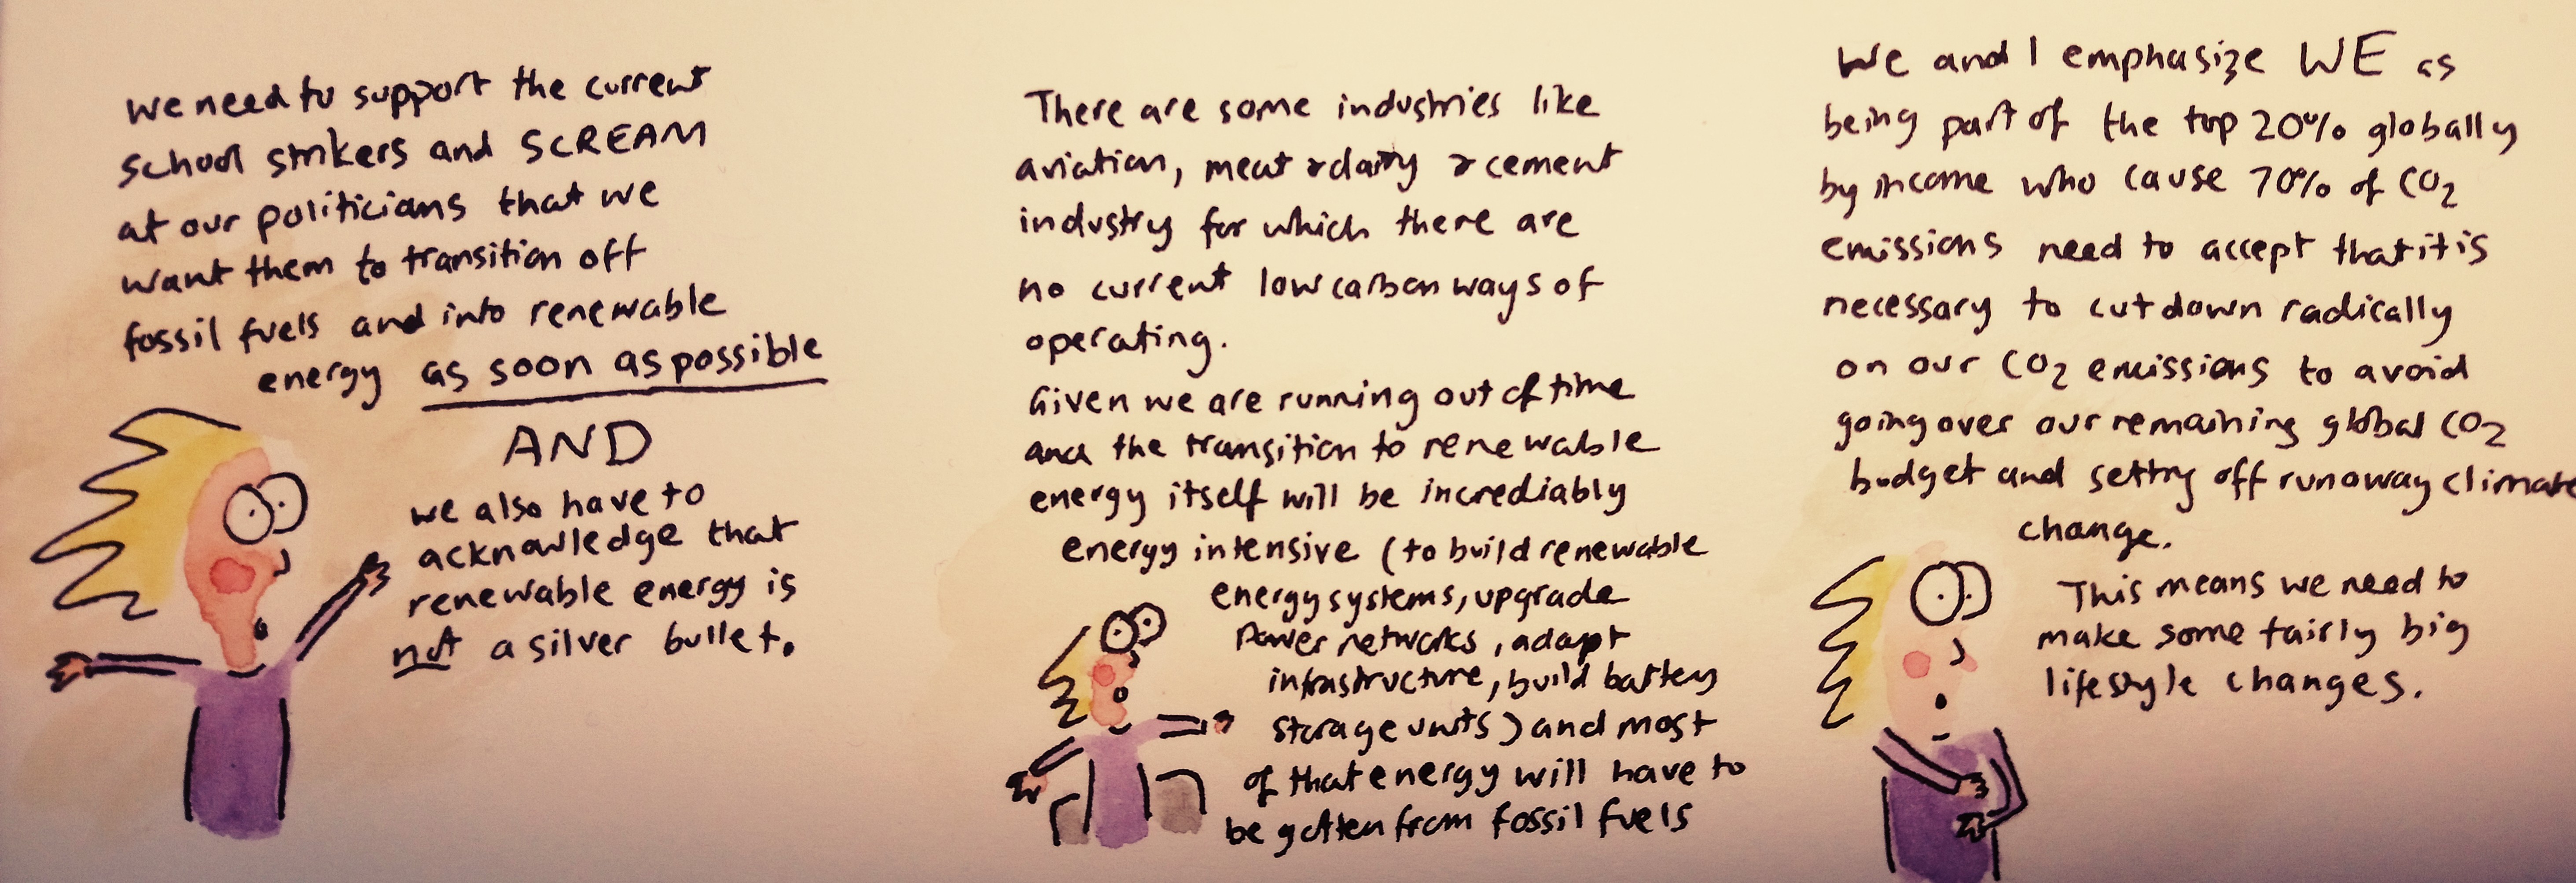 we need to support the current
school strikers and SCREAM
at our politicians that we
want them to transition off
fossil fuels and into renewable
energy as soon as possible
AND
we also have to
acknowledge that
renewable energy is
not a silver bullet.
There are some industries like
aviation, meat & dairy & cement
industry for which there are
no current low carbon ways of
operating.
Given we are running out of time
and the transition to renewable
energy itself will be incrediably
energy intensive (to build renewable
energy systems, upgrade
power networks, adapt
infrastructure, build battery
storage units) and most
of that energy will have to
be gotten from fossil fuels
We and I emphasize WE as
being part of the top 20% globally
by income who cause 70% of CO2
emissions need to accept that it is
necessary to cut down radically
on our CO2 emissions to avoid
going over our remaining global CO2
budget and setting off runaway climate
change.
This means we need to
make some fairly big
lifestyle changes.